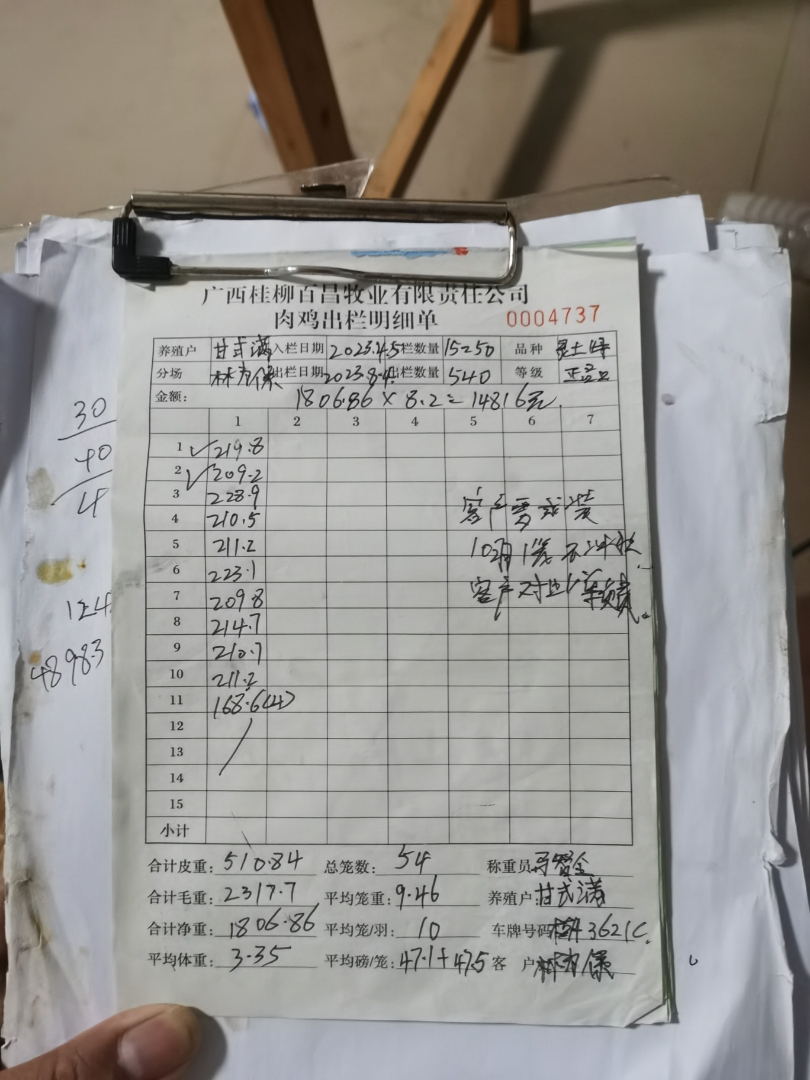 广西桂柳百昌牧业有限责任公司
肉鸡出栏明细单 0004737
养殖户 甘武满 入栏日期 2023.4.5 栏数量 15250 品种
分场 出栏日期 2023.8.4 出栏数量 540 等级
金额： 1806.86 × 8.2 = 14816元.
1 2 3 4 5 6 7
1 219.8
2 209.2
3 228.9
4 210.5 客户
5 211.2
6 223.1 客户
7 209.8
8 214.7
9 210.7
10 211.2
11 168.6(4)
12
13
14
15
小计
合计皮重: 510.84 总笼数: 54 称重员
合计毛重: 2317.7 平均笼重: 9.46 养殖户: 甘武满
合计净重: 1806.86 平均笼/羽: 10 车牌号码 3621C.
平均体重: 3.35 平均磅/笼: 47.1+47.5 客 户
30
40
4
124
48983